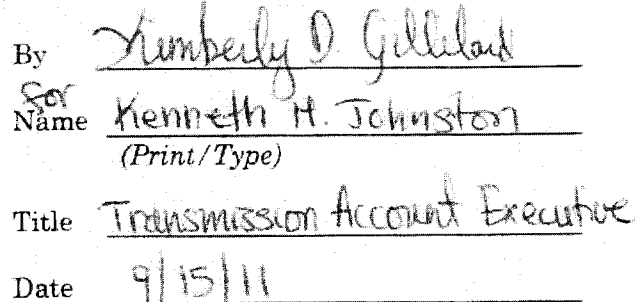 By Kimberly D. Gilliland
for
Name Kenneth H. Johnston
(Print/Type)
Title Transmission Account Executive
Date 9/15/11